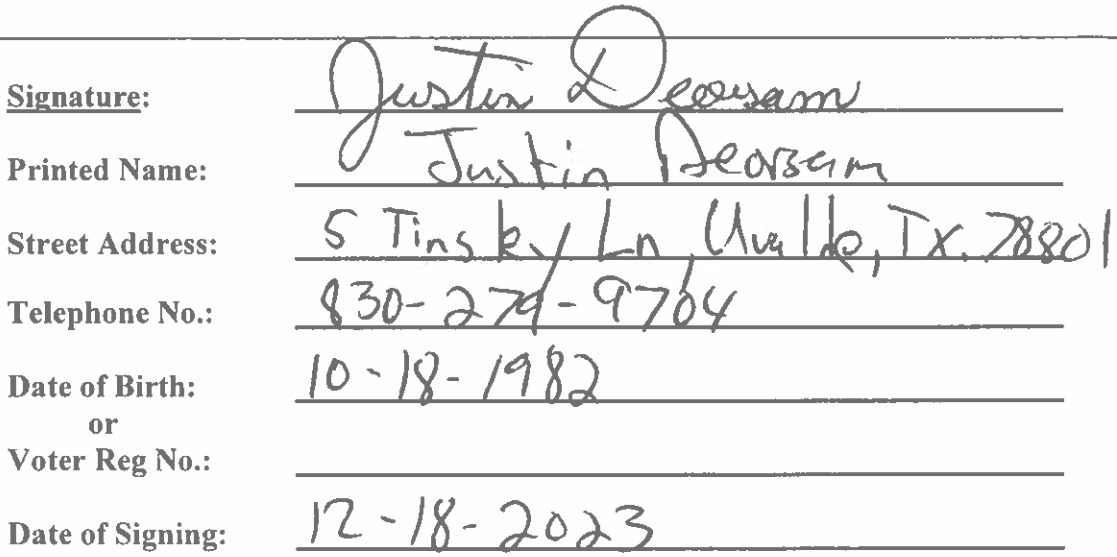 Signature: Justin Dearsam
Printed Name: Justin Dearsam
Street Address: 5 Tinsley Ln, Uvalde, Tx. 78801
Telephone No.: 830-279-9764
Date of Birth: 10-18-1982
or
Voter Reg No.:
Date of Signing: 12-18-2023